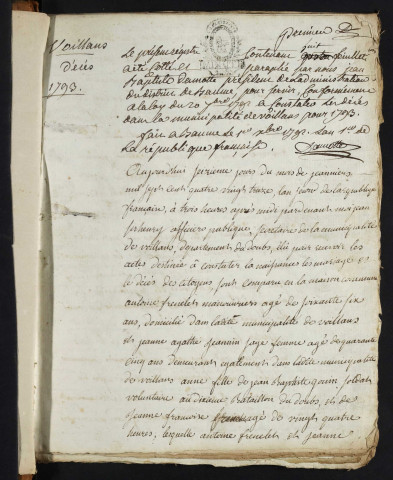 premier
Voillans
Décès
1793.
Le présent registre Contenant huit feuillets
a été Cotté et paraphé par nous jean
Baptiste Damotte président de l'administration
du district de Baume, pour servir, Conformément
a la loy du 20 7bre 1792 a Constater les décès
dans la municipalité de Voillans pour 1793.
fait a Baume le 1er xbre 1792. L'an 1er de
la république française.
Damotte
Aujourdhui seizieme jours du mois de jeanviers
mil sept cent quatre vingt treize, l'an second de la republique
française, à trois heures apres midi pardevant moi jean
officiers publique, secretaire de la municipalité
de voillans, departement du doubs, élu pour recevoir les
actes destinés à constater la naissance les mariages et
le décès des citoyens sont comparu en la maison commune
antoine frenelet manouvriers agé de soixante six
ans, domicilié dans ladite municipalité de voillans
et jeanne agathe jeannin sage femme agé de quarante
cinq ans demeurant egalement dans ladite municipalité
de voillans anne fille de jean Baptiste soldat
volontaire au dixieme Bataillon du doubs, et de
jeanne francoise agé de vingt quatre
heures, lesquelle antoine frenelet et jeanne